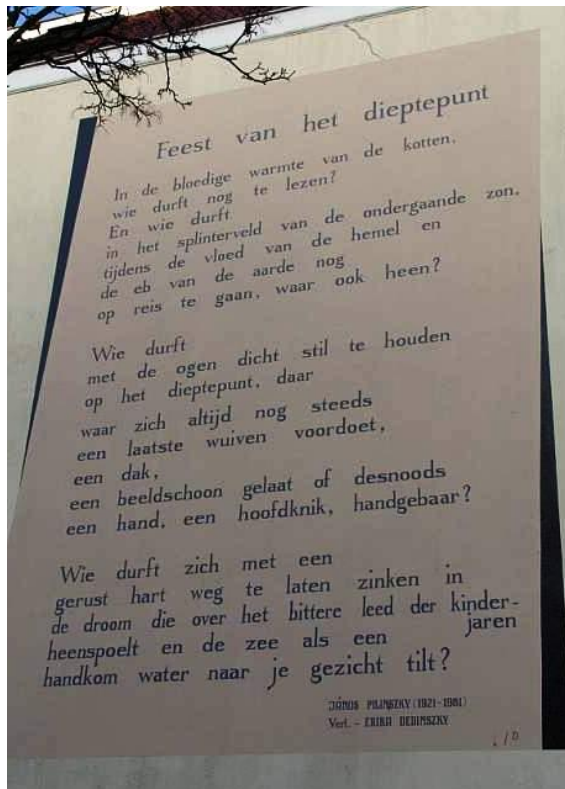 Feest van het dieptepunt
In de bloedige warmte van de kotten,
wie durft nog te lezen?
En wie durft
in het splinterveld van de ondergaande zon,
tijdens de vloed van de hemel en
de eb van de aarde nog
op reis te gaan, waar ook heen?
Wie durft
met de ogen dicht stil te houden
op het dieptepunt, daar
waar zich altijd nog steeds
een laatste wuiven voordoet,
een dak,
een beeldschoon gelaat of desnoods
een hand, een hoofdknik, handgebaar?
Wie durft zich met een
gerust hart weg te laten zinken in
de droom die over het bittere leed der kinder-
jaren
heenspoelt en de zee als een
handkom water naar je gezicht tilt?
JÁNOS PILINSZKY (1921-1981)
Vert. - ERIKA DEDINSZKY